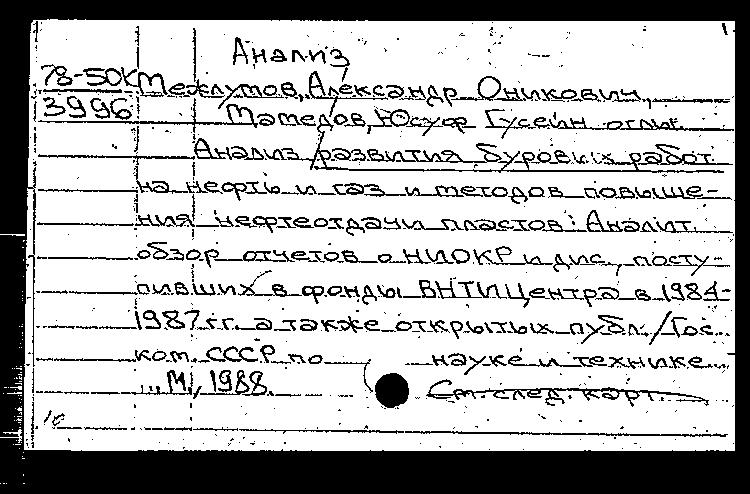 Анализ
78-50К Межлумов, Александр Оникович,
3996 Мамедов, Юсуф Гусейн оглы.
Анализ развития буровых работ
на нефть и газ и методов повыше-
ния нефтеотдачи пластов: Аналит.
обзор отчетов о НИОКР и дис., посту-
пивших в фонды ВНТИЦентра в 1984-
1987 гг. а также открытых публ./Гос.
ком. СССР по науке и технике...
...М., 1988. См. след. карт.